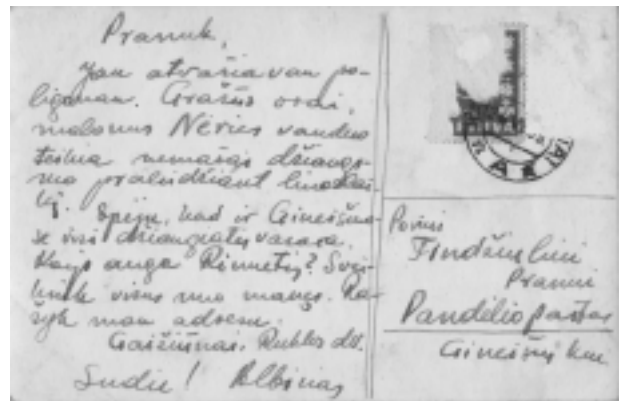 Pranuk,
Jau atvažiavau po-
ligonan. Gražūs orai,
malonus Neries vanduo
teikia nemažai džiaugs-
mo praleidžiant
kį. Spėju, kad ir Gineišiuo-
se visi džiaugiatės vasara.
Kaip auga Rimutis? Svei-
kink visus nuo manęs. Ra-
šyk man adresu:
Gaižiūnai, Ruklos dv.
Sudie! Albinas
Ponui
Pranui
Pandėlio paštas
Gineišių km.